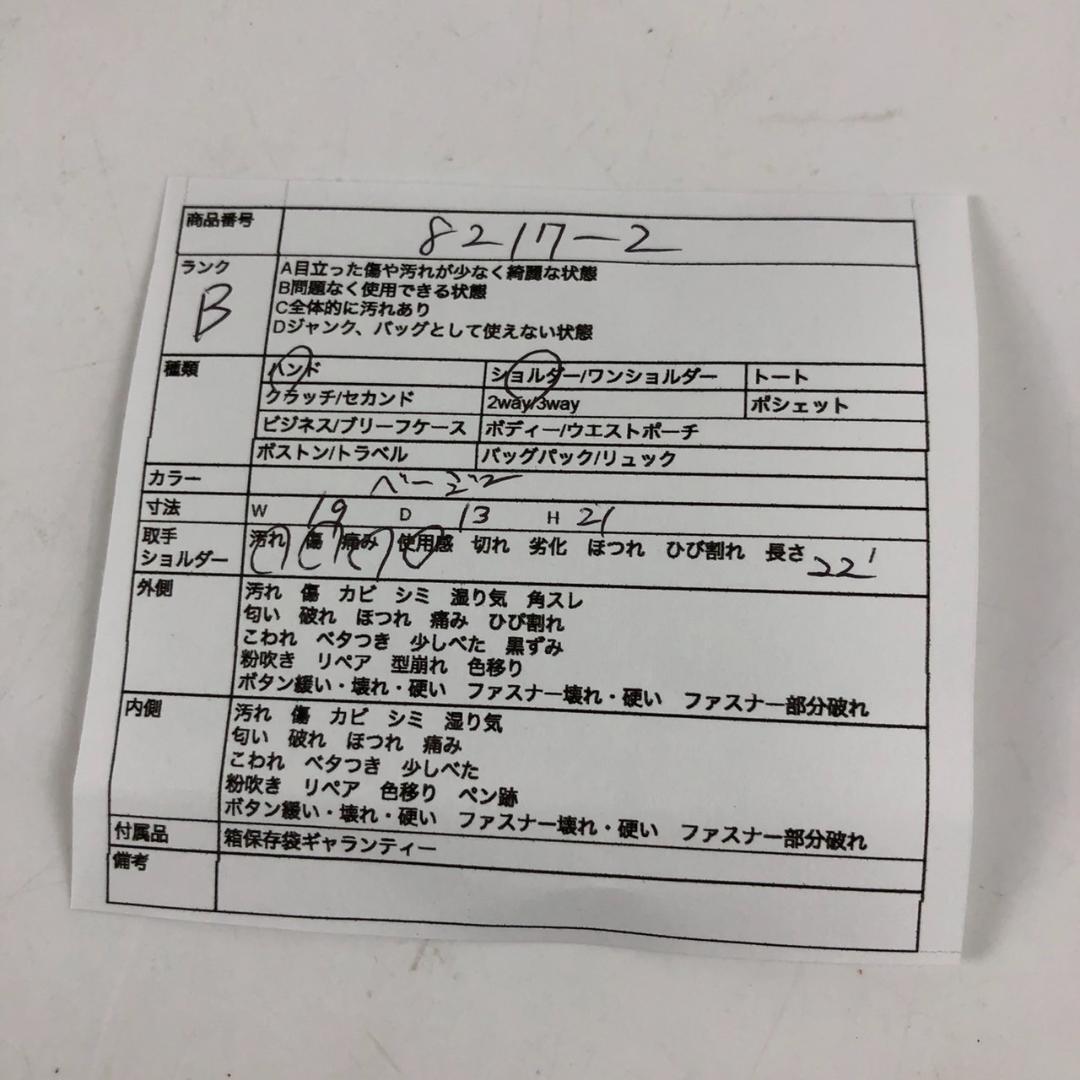 商品番号 8217-2
ランク B
A目立った傷や汚れが少なく綺麗な状態
B問題なく使用できる状態
C全体的に汚れあり
Dジャンク、バッグとして使えない状態
種類 ハンド ショルダー/ワンショルダー トート
クラッチ/セカンド 2way/3way ポシェット
ビジネス/ブリーフケース ボディー/ウエストポーチ
ボストン/トラベル バッグパック/リュック
カラー ベージュ
寸法 W 19 D 13 H 21
取手 汚れ 傷 痛み 使用感 切れ 劣化 ほつれ ひび割れ 長さ 22
ショルダー
外側 汚れ 傷 カビ シミ 湿り気 角スレ
匂い 破れ ほつれ 痛み ひび割れ
こわれ ベタつき 少しべた 黒ずみ
粉吹き リペア 型崩れ 色移り
ボタン緩い・壊れ・硬い ファスナー壊れ・硬い ファスナー部分破れ
内側 汚れ 傷 カビ シミ 湿り気
匂い 破れ ほつれ 痛み
こわれ ベタつき 少しべた
粉吹き リペア 色移り ペン跡
ボタン緩い・壊れ・硬い ファスナー壊れ・硬い ファスナー部分破れ
付属品 箱保存袋ギャランティー
備考